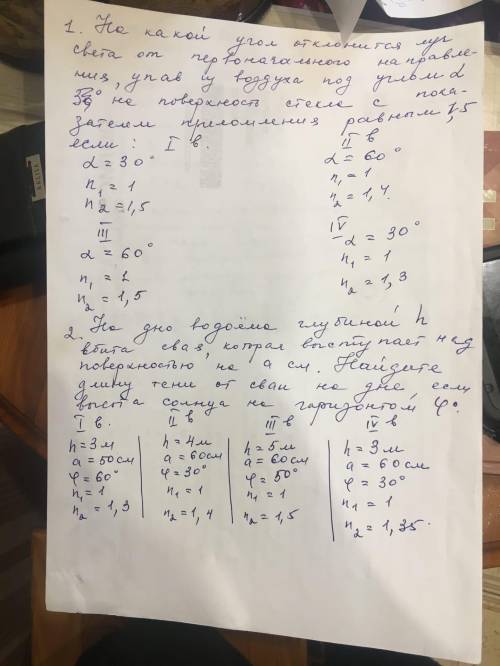 1. На какой угол отклонится луч
света от первоначального направле-
ния, упав из воздуха под углом α
на поверхность стекла с пока-
зателем преломления равным 1,5
если: I в.
α = 30°
n₁ = 1
n₂ = 1,5
II в
α = 60°
n₁ = 1
n₂ = 1,4.
III
α = 60°
n₁ = 1
n₂ = 1,5
IV
α = 30°
n₁ = 1
n₂ = 1,3
2. На дно водоёма глубиной h
вбита свая, которая выступает над
поверхностью на a см. Найдите
длину тени от сваи на дне, если
высота солнца на гаризонтом φ°.
I в.
h = 3 м
a = 50 см
φ = 60°
n₁ = 1
n₂ = 1,3
II в
h = 4 м
a = 60 см
φ = 30°
n₁ = 1
n₂ = 1,4
III в
h = 5 м
a = 60 см
φ = 50°
n₁ = 1
n₂ = 1,5
IV в
h = 3 м
a = 60 см
φ = 30°
n₁ = 1
n₂ = 1,35.